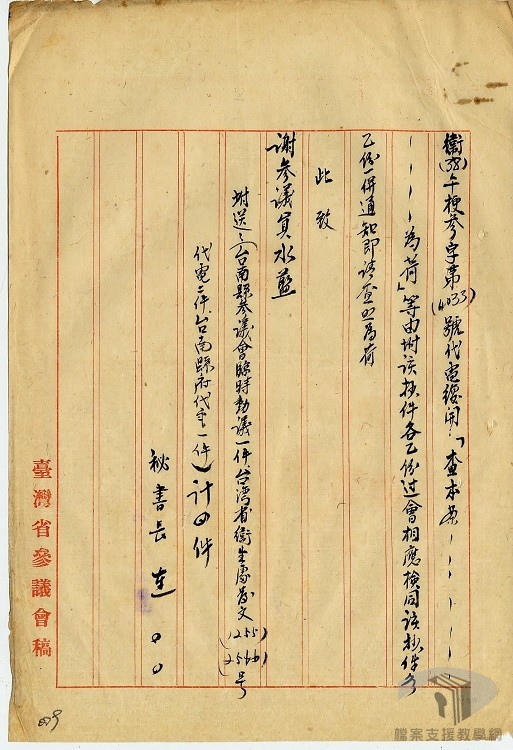 衛(38)午梗參字第(4033)號代電復開：「查本案－－－－－
－－－－為荷」等由附該抄件各乙份過會相應檢同該抄件各
乙份一併通知即請查照為荷
此致
謝參議員水藍
附送（台南縣參議會臨時動議一件台湾省衛生處發文(1255)(2566)号
代電二件、台南縣府代電一件）計四件
秘書長連〇〇
臺灣省參議會稿
檔案支援教學網